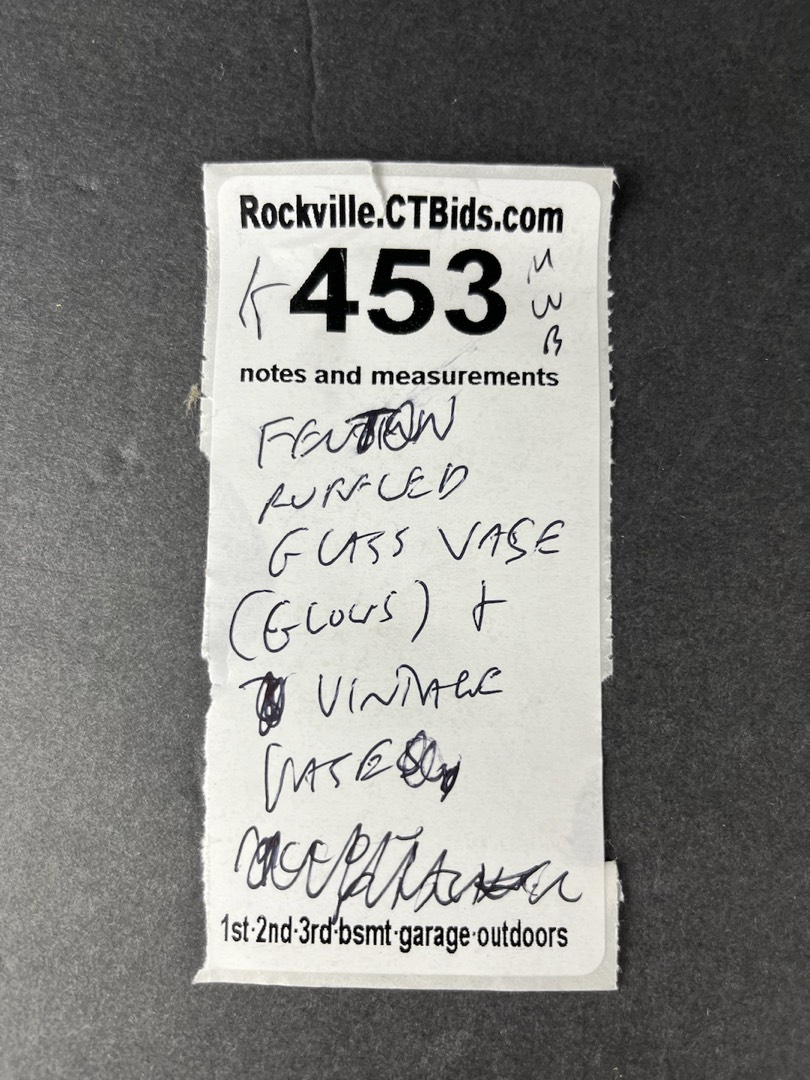 Rockville.CTBids.com
K 453 MWB
notes and measurements
FENTON
RUFFLED
GLASS VASE
(GLOWS) +
VINTAGE
VASE
1st·2nd·3rd·bsmt·garage·outdoors